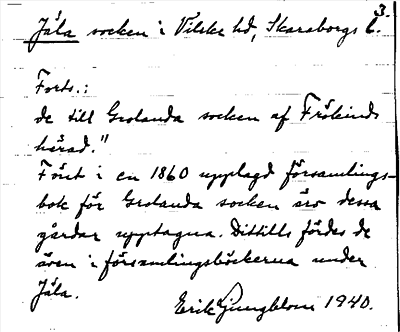 3.
Jäla socken i Vilske hd, Skaraborgs l.
Forts.:
de till Grolanda socken af Frökinds
härad."
Först i en 1860 upplagd församlings-
bok för Grolanda socken äro dessa
gårdar upptagna. Dittills fördes de
även i församlingsböckerna under
Jäla.
Erik Ljungblom 1940.